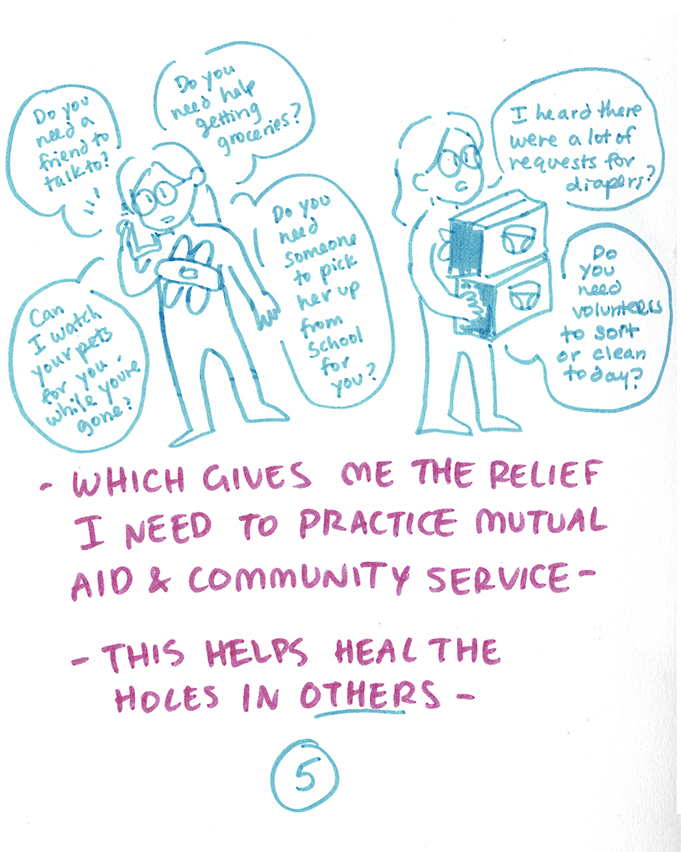 Do you
need a
friend to
talk to?
Do you
need help
getting
groceries?
Can
I watch
your pets
for you
while you're
gone?
Do you
need
someone
to pick
her up
from
school
for
you?
I heard there
were a lot of
requests for
diapers?
Do
you
need
volunteers
to sort
or clean
today?
- WHICH GIVES ME THE RELIEF
I NEED TO PRACTICE MUTUAL
AID & COMMUNITY SERVICE -
- THIS HELPS HEAL THE
HOLES IN OTHERS -
5